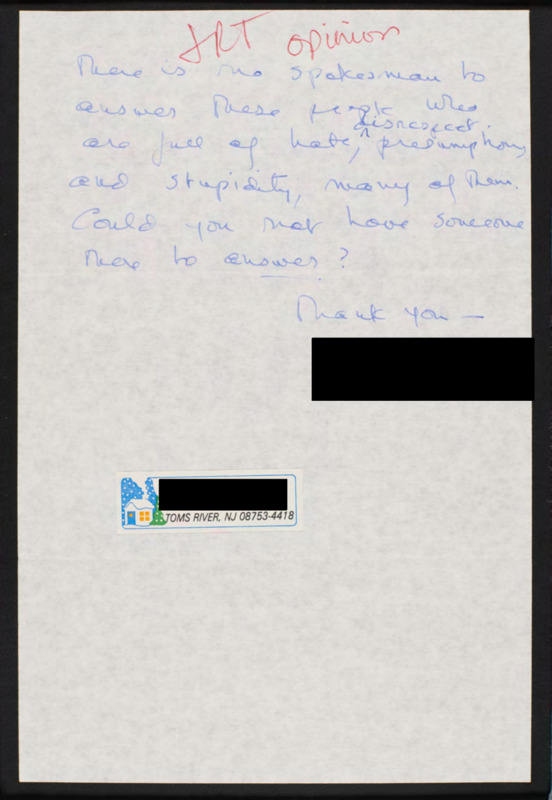 JRT opinion
There is no spokesman to
answer these people who
disrespect,
are full of hate, presumptions,
and stupidity, many of them.
Could you not have someone
there to answer?
Thank you —
TOMS RIVER, NJ 08753-4418